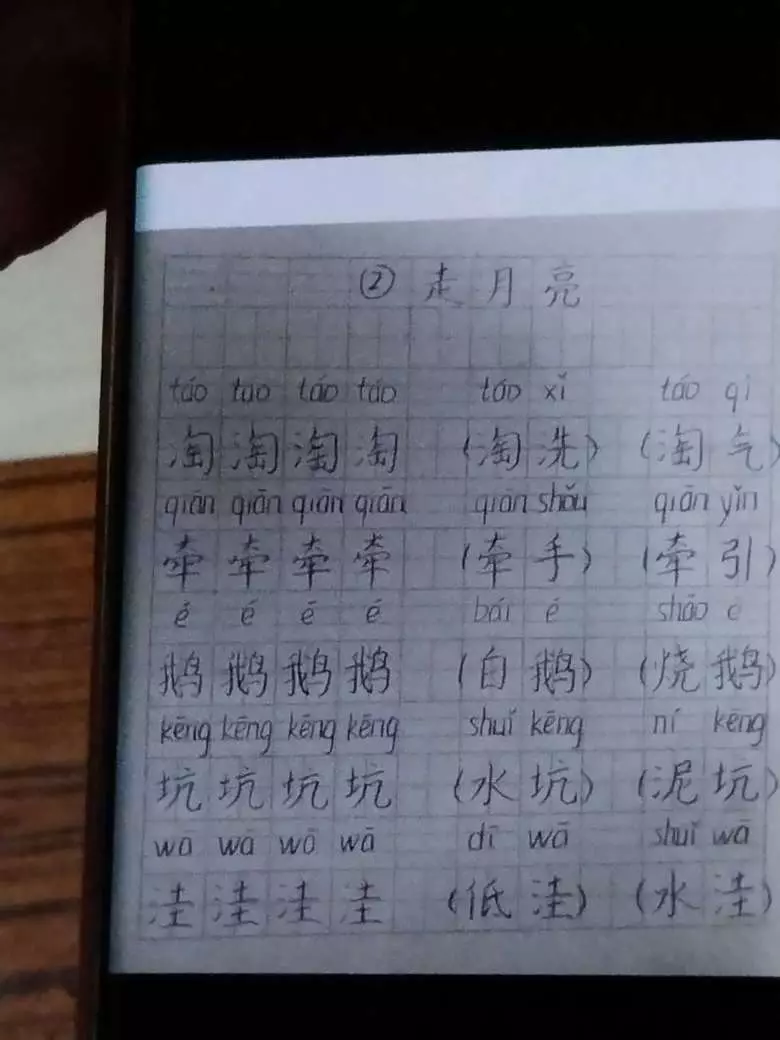 ② 走月亮
táo táo táo táo táo xǐ táo qì
淘 淘 淘 淘 (淘洗) (淘气)
qiān qiān qiān qiān qiān shǒu qiān yǐn
牵 牵 牵 牵 (牵手) (牵引)
é é é é bái é shāo é
鹅 鹅 鹅 鹅 (白鹅) (烧鹅)
kēng kēng kēng kēng shuǐ kēng ní kēng
坑 坑 坑 坑 (水坑) (泥坑)
wā wā wā wā dī wā shuǐ wā
洼 洼 洼 洼 (低洼) (水洼)